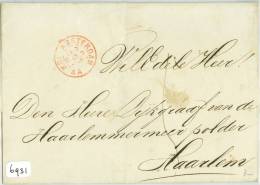 AMSTERDAM
WelEd. Heer!
Den Heere Dijkgraaf van de
Haarlemmermeer polder
Haarlem
6931